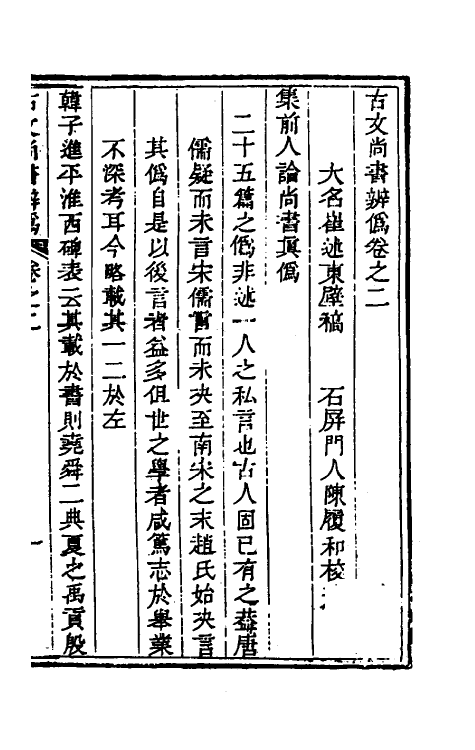 古文尚書辨僞卷之二
大名崔述東壁稿　石屏門人陳履和校
集前人論尚書眞僞
二十五篇之僞非述一人之私言也古人固已有之葢唐
儒疑而未言宋儒言而未決至南宋之末趙氏始決言
其僞自是以後言者益多但世之學者咸篤志於舉業
不深考耳今略載其一二於左
韓子進平淮西碑表云其載於書則堯舜二典夏之禹貢殷
古文尚書辨僞　卷之二　一